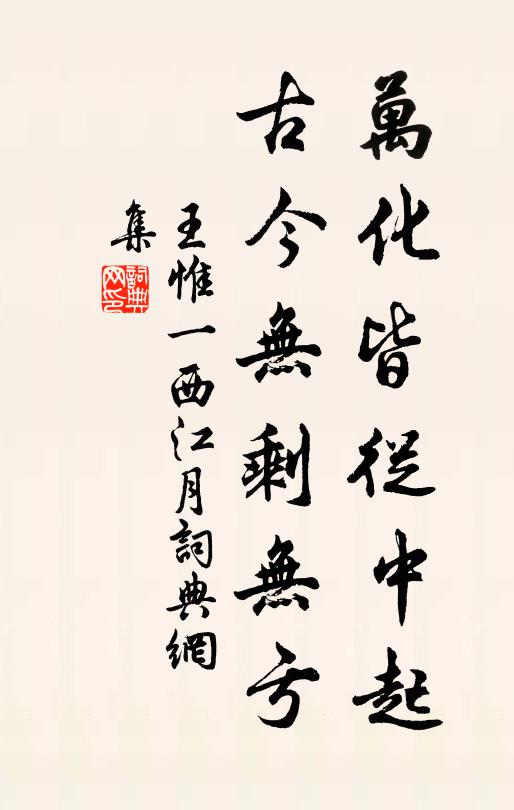 萬化皆從中起
古今無剩無亏
王惟一西江月詞典網
集
詞典網印